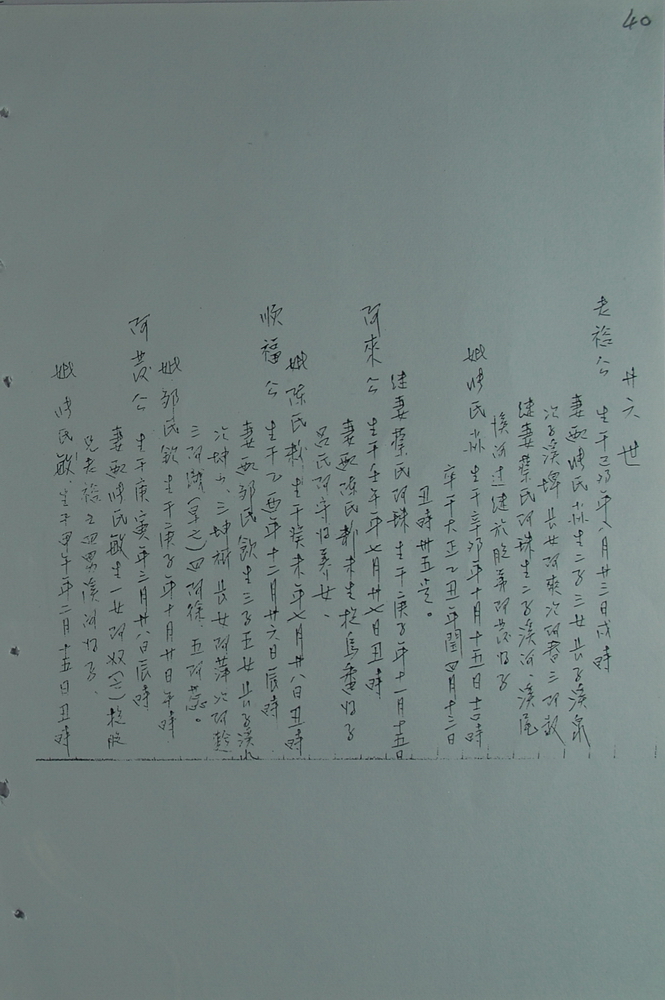 40
廿六世
老裕公 生于己卯年八月廿三日戌時
妻配陳氏 生二子三女長子溪泉
次子溪埤長女阿來次阿春三阿
繼妻蔡氏阿珠生二子溪河、溪尾
溪河過繼於胞弟阿茂為子
妣陳氏 生于辛卯年十月十五日吉時
卒于大正乙丑年閏四月十三日
丑時卅五歲。
繼妻蔡氏阿珠生于庚子年十一月十五日
阿來公 生于壬午年七月廿七日丑時
妻配陳氏 未生 為子
呂氏阿守為養女、
妣陳氏 生于癸未年七月廿八日丑時
順福公 生于乙酉年十二月廿六日辰時
妻配鄒氏欽生三子五女長子溪
次坤山、三坤樹長女阿萍次阿
三阿 四阿徐五阿蕊。
妣鄒氏欽生于庚子年十月廿日午時
阿茂公 生于庚寅年三月廿八日辰時
妻配陳氏敏生一女阿 胞
兄老裕之四男溪河為子、
妣陳氏敏、生于甲午年二月十五日丑時